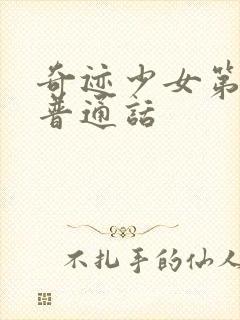 奇迹少女第
普通話
不扎手的仙人